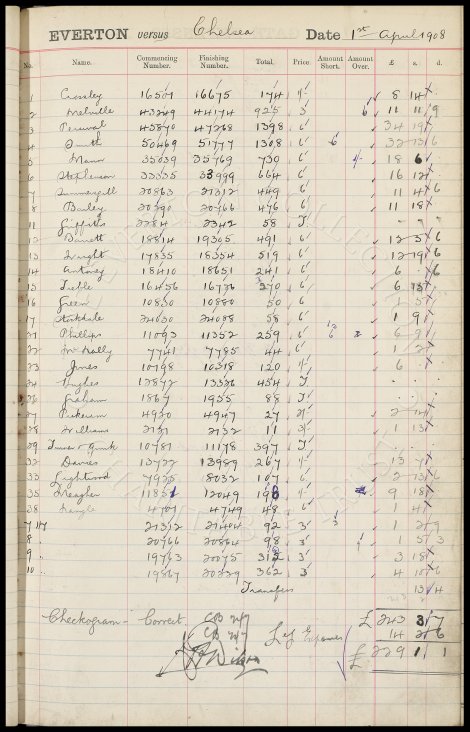 EVERTON versus Chelsea Date 1st April 1908
No. Name. Commencing Number. Finishing Number. Total. Price. Amount Short. Amount Over. £ s. d.
1 Crossley 16501 16675 174 1/- 8 14
2 Melville 43249 44174 925 3 6 11 11 9
3 Percival 45870 47268 1398 6 34 19
4 Smith 50469 51777 1308 6 6 32 13 6
5 Mann 35039 35769 730 6 18 6
6 Stephenson 33335 33999 664 6 16 12
7 Summersgill 20863 21312 449 6 11 4 6
8 Bailey 20290 20766 476 6 11 18
11 Griffiths 2284 2342 58
12 Barrett 18814 19305 491 6 12 5 6
13 Wright 17835 18354 519 6 12 19 6
14 18410 18651 241 6 6 6
15 16456 16726 270 6 6 15
16 Green 10830 10880 50 6 1 5
17 Stockdale 24030 24088 58 6 1 9
21 Phillips 11093 11352 259 6 6 9
22 McNally 7741 7785 44 6 1 2
23 Jones 10198 10318 120 1/- 6
24 Hughes 12872 13326 454
26 Graham 1867 1955 88
27 Parkinson 4920 4947 27 2 14
28 William 2121 2132 11 1 13
29 10781 11178 397
32 Davies 13722 13989 267 1/- 13 7
33 Lightwood 7925 8032 107 6 2 13 6
35 Meagher 11851 12049 198 1/- 9 18
36 4701 4749 48 6 1 4
7 21312 21404 92 3 3 1 2 9
8 " 20766 20864 98 3 1 5 3
9 " 19763 20075 312 3 3 18
10 " 19867 20229 362 3 4 10 6
Transfers 13 4
Checkogram - Correct. £ 243 3 7
Less Expenses 14 2 6
£ 229 1 1